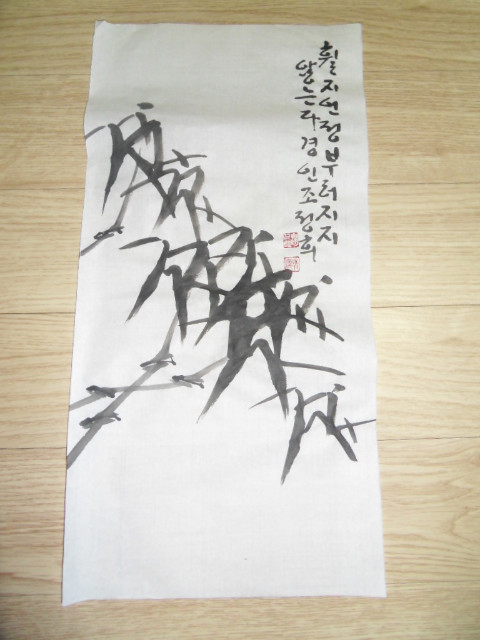 휠지언정부러지지
않는다경인조정희